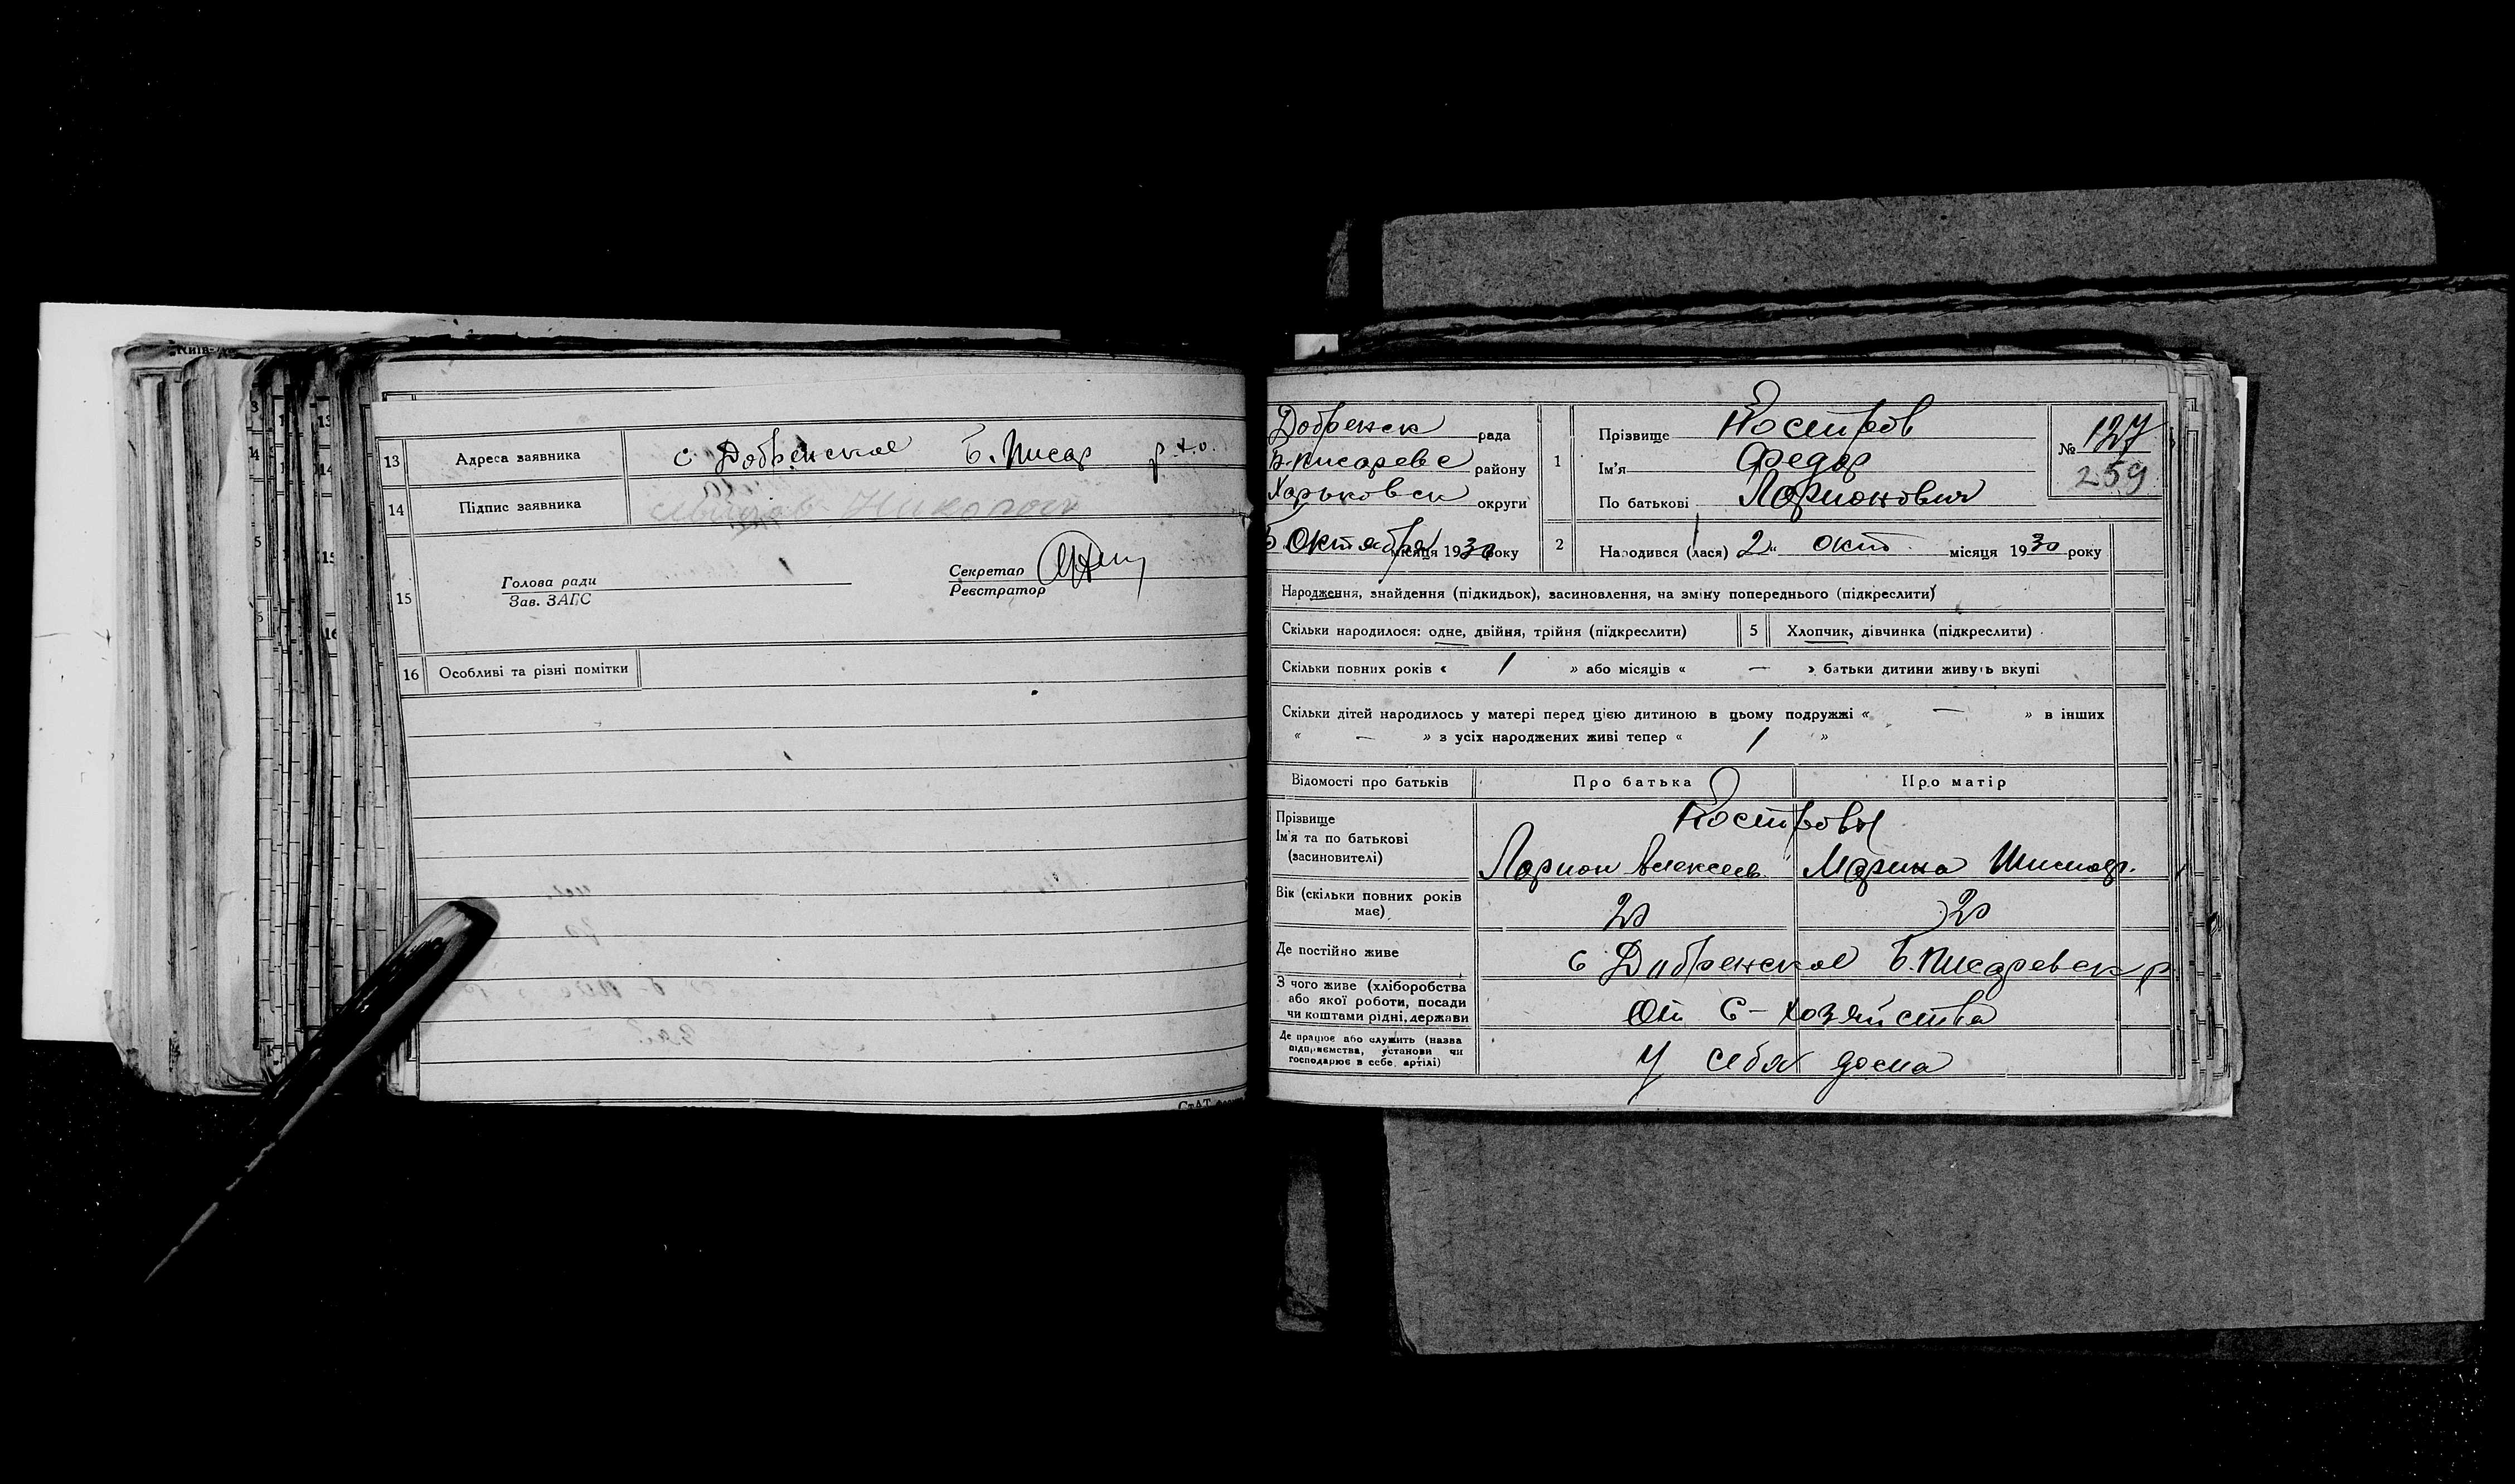 13 Адреса заявника с Добренское Б. Писар р. х.о.
14 Підпис заявника Николай
15 Голова ради
Зав. ЗАГС
Секретар
Реєстратор
16 Особливі та різні помітки
Добренск рада
Б. Писаревс району
Харьковск округи
5 Октября місяця 1930 року
1 Прізвище Костров
Ім'я Федор
По батькові Ларионович
№ 127
259
2 Народився (лася) 2 " окт. місяця 1930 року
Народження, знайдення (підкидьок), засиновлення, на зміну попереднього (підкреслити)
Скільки народилося: одне, двійня, трійня (підкреслити) 5 Хлопчик, дівчинка (підкреслити)
Скільки повних років « 1 » або місяців « — » батьки дитини живуть вкупі
Скільки дітей народилось у матері перед цією дитиною в цьому подружжі « — » в інших
« — » з усіх народжених живі тепер « 1 »
Відомості про батьків Про батька Про матір
Прізвище Костровы
Ім'я та по батькові
(засиновителі) Ларион Алексеев. Марина
Вік (скільки повних років
має) 20 20
Де постійно живе с Добренское Б. Писаревск р
З чого живе (хліборобства
або якої роботи, посади
чи коштами рідні, держави От С-хозяйства
Де працює або служить (назва
підприємства, установи чи
господарює в себе, артілі) У себя дома